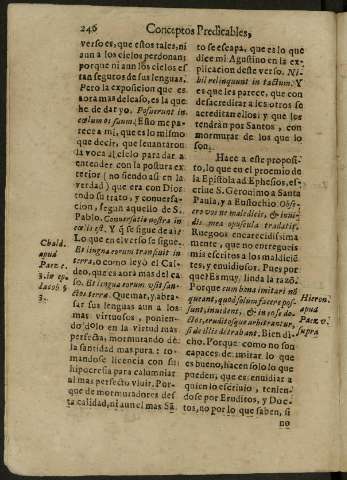 246
Conceptos Predicables,
verso es, que estos tales, ni
aun a los cielos perdonan;
porque ni aun los cielos es
tan seguros de sus lenguas.
Pero la exposicion que es
aora mas del caso, es la que
he de dar yo. Posuerunt in
cœlum os suum. Esto me pa-
rece a mi, que es lo mismo
que decir, que leuantaron
la voca al cielo para dar a
entender con la postura ex
terior (no siendo asi en la
verdad) que era con Dios
todo su trato, y conuersa-
cion, segun aquello de S.
Pablo. Conuersatio nostra in
cœlis est. Y q̃ se sigue de ai?
Lo que en el verso se sigue.
Et lingua eorum transiuit in
terra, ò como leyò el Cal-
deo, que es aora mas del ca
so. Et lingua eorum vsit san-
ctos terræ. Quemar, y abra-
sar sus lenguas aun a los
mas virtuosos, ponien-
do dolo en la virtud mas
perfecta, mormurando de
la santidad mas pura: to-
mandose licencia con su
hipocresia para calumniar
al mas perfecto viuir. Por-
que de mormuradores des
ta calidad, ni aun el mas Sã
Chald.
apud
Paez c.
3. in ep.
Iacob §
3.
to se escapa, que es lo que
dice mi Agustino en la ex-
plicacion deste verso. Ni-
bil relinquunt in tactum. Y
es que les parece, que con
desacreditar a los otros se
acreditan ellos: y que los
tendràn por Santos, con
mormurar de los que lo
son.
Hace a este proposi-
to, lo que en el proemio de
la Epistola ad Ephesios, es-
criue S. Geronimo a Santa
Paula, y a Eustochio. Obse-
cro vos ne maledicis, & inui-
dis mea opuscula tradatis.
Ruegoos encarecidissima-
mente, que no entregueis
mis escritos a los maldiciẽ-
tes, y enuidiosos. Pues por
que? Es muy linda la razõ.
Porque cum bima imitari nõ
queant, quod solum facere pos-
sunt, inuident, & in eo se do-
ctos, eruditosque arbitrantur,
si de illis detrabant. Bien di-
cho. Porque como no son
capaces de imitar lo que
es bueno, hacen solo lo que
pueden, que es enuidiar a
quien lo escriuio, tenien-
dose por Eruditos, y Doc-
tos, no por lo que saben, si
no
Hieron.
apud
Paez v.
supra